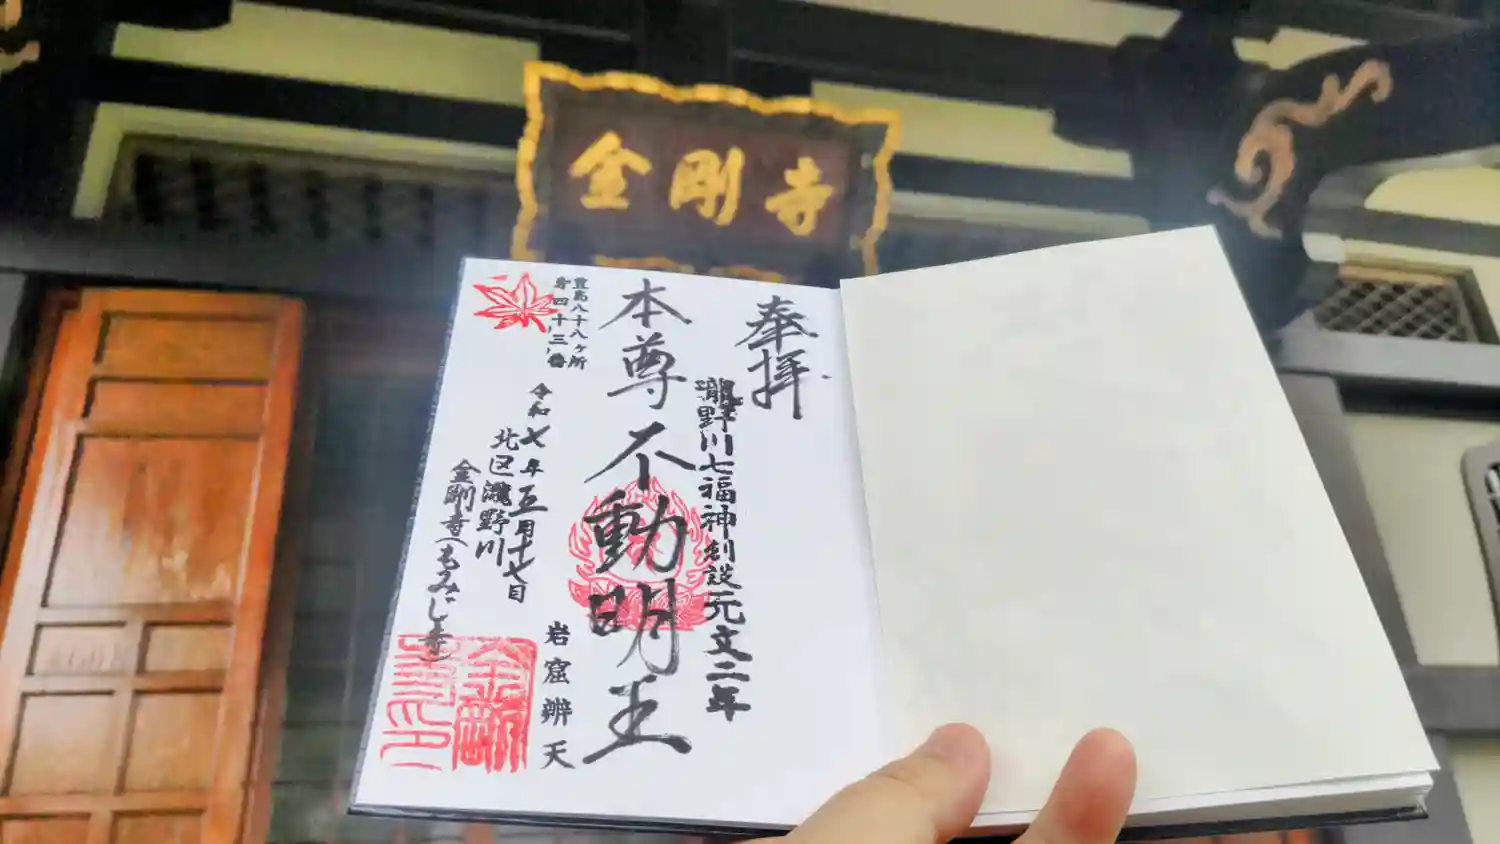 金剛寺
奉拝
瀧野川七福神創設元文二年
本尊不動明王
岩窟辨天
豊島八十八ヶ所
第四十三番
令和七年五月十七日
北区瀧野川
金剛寺(もみじ寺)
金剛
寺印